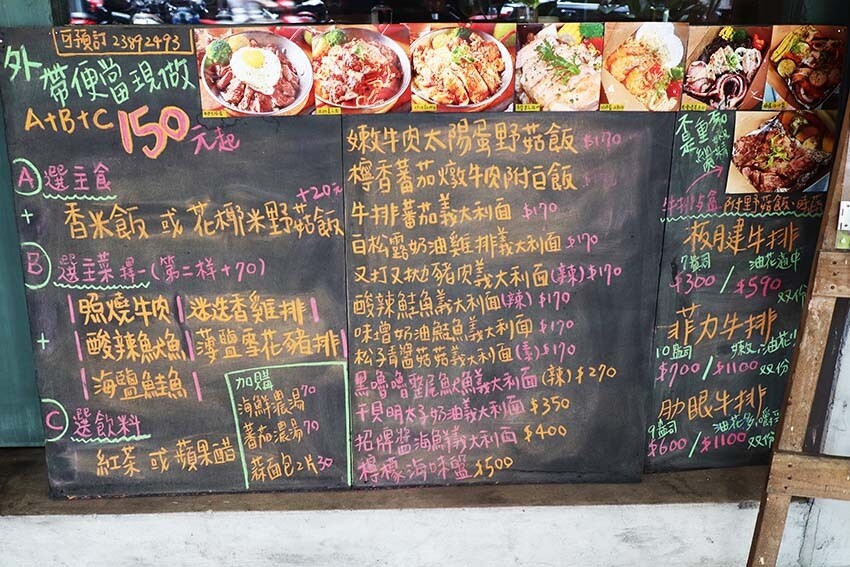 可預訂 23892493
外帶便當現做
A+B+C 150元起
A 選主食
+20元
+ 香米飯 或 花椰米野菇飯
B 選主菜 擇一(第二樣+70)
照燒牛肉 迷迭香雞排
+ 酸辣魷魚 薄鹽雪花豬排
海鹽鮭魚
C 選飲料
紅茶 或 蘋果醋
加購
海鮮濃湯70
蕃茄濃湯70
蒜麵包2片30
嫩牛肉太陽蛋野菇飯 $170
檸香蕃茄燉牛肉附白飯 $170
牛排蕃茄義大利面 $170
白松露奶油雞排義大利面 $170
又打又拋豬肉義大利面(辣) $170
酸辣鮭魚義大利面(辣) $170
味增奶油鮭魚義大利面 $170
松子青醬菇菇義大利面(素) $170
黑嚕嚕整尾魷魚義大利面(辣) $270
干貝明太子奶油義大利面 $350
招牌醬海鮮義大利面 $400
檸檬海味盤 $500
牛排 附野菇飯
板腱牛排
7盎司 油花適中
$300 / $590 双份
菲力牛排
10盎司 嫩,油花少
$700 / $1100 双份
肋眼牛排
9盎司 油花多,嚼
$600 / $1100 双份